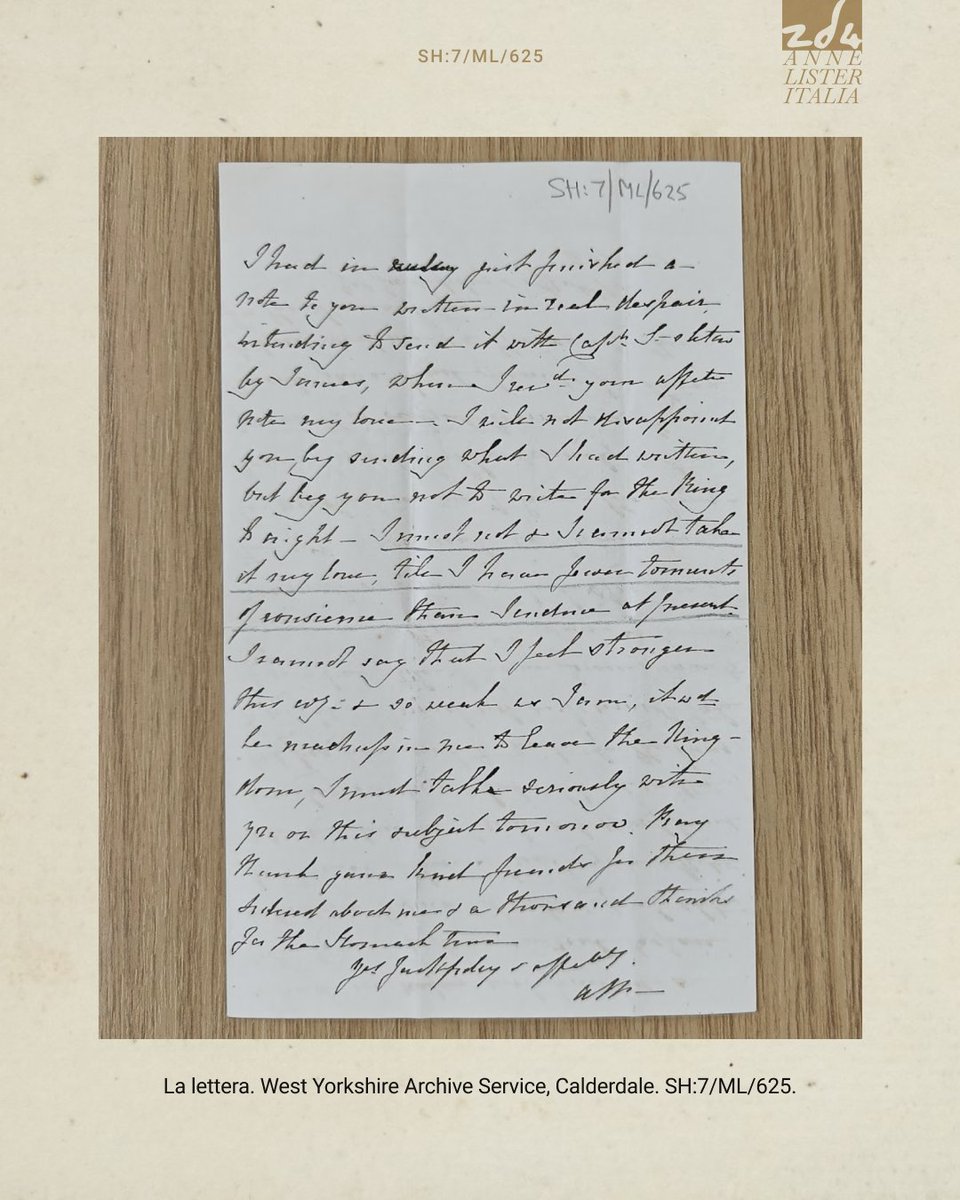 SH:7/ML/625
ANNE
LISTER
ITALIA
SH:7/ML/625
I had in just finished a
note to you written in real despair,
intending to send it with Capt. S-
by James, when I recd. your affte
note my love - I will not disappoint
you by sending what I had written,
but beg you not to write for the Ring
to night - I must not & I cannot take
it my love, till I have fewer torments
of conscience than I endure at present.
I cannot say that I feel stronger
this & so weak as I am, it wd
be madness in me to leave the King-
dom, I must talk seriously with
yu on this subject tomorrow. Pray
thank your kind friends for their
about me & a thousand thanks
for the Stomach
Yrs faithfully & affecly.
AW-
La lettera. West Yorkshire Archive Service, Calderdale. SH:7/ML/625.